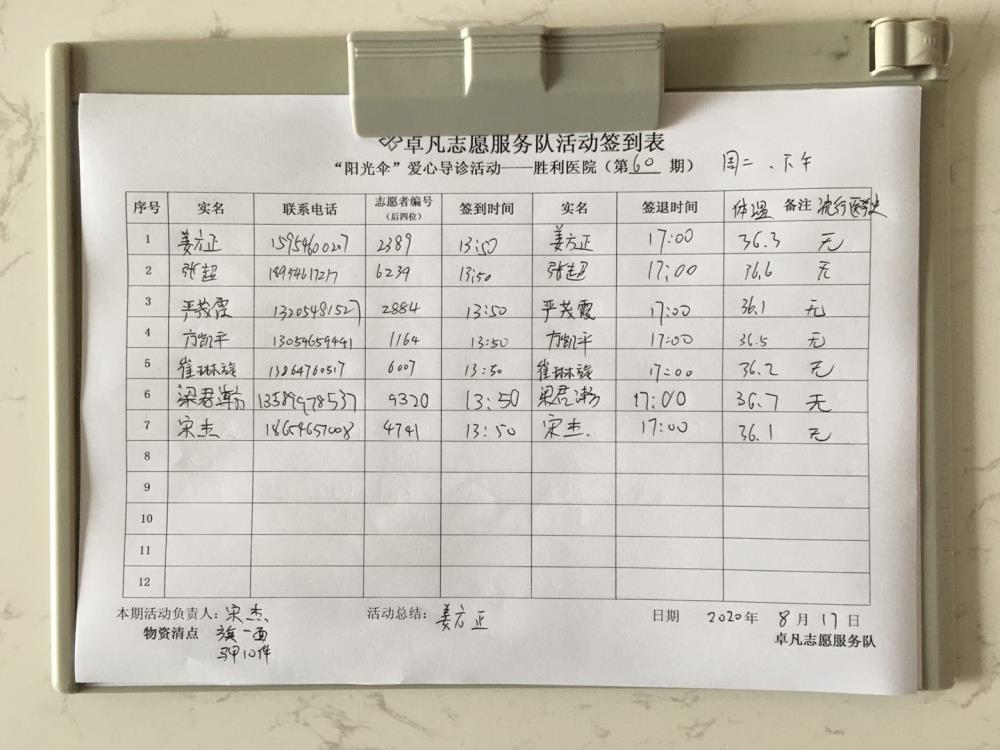 卓凡志愿服务队活动签到表
“阳光伞”爱心导诊活动——胜利医院（第60期） 周二、下午
序号 实名 联系电话 志愿者编号（后四位） 签到时间 实名 签退时间 体温 备注 流行医学史
1 姜方正 15954600207 2389 13:50 姜方正 17:00 36.3 无
2 张超 18954617217 6239 13:50 张超 17:00 36.6 无
3 严茂霞 13205481527 2884 13:50 严茂霞 17:00 36.1 无
4 方凯平 13054659441 1164 13:50 方凯平 17:00 36.5 无
5 崔琳璇 13864760517 6007 13:50 崔琳璇 17:00 36.2 无
6 梁君瀚 13589978537 9320 13:50 梁君瀚 17:00 36.7 无
7 宋杰 18654657008 4741 13:50 宋杰 17:00 36.1 无
8
9
10
11
12
本期活动负责人：宋杰 活动总结：姜方正 日期 2020年8月17日
物资清点 旗一面 卓凡志愿服务队
马甲10件